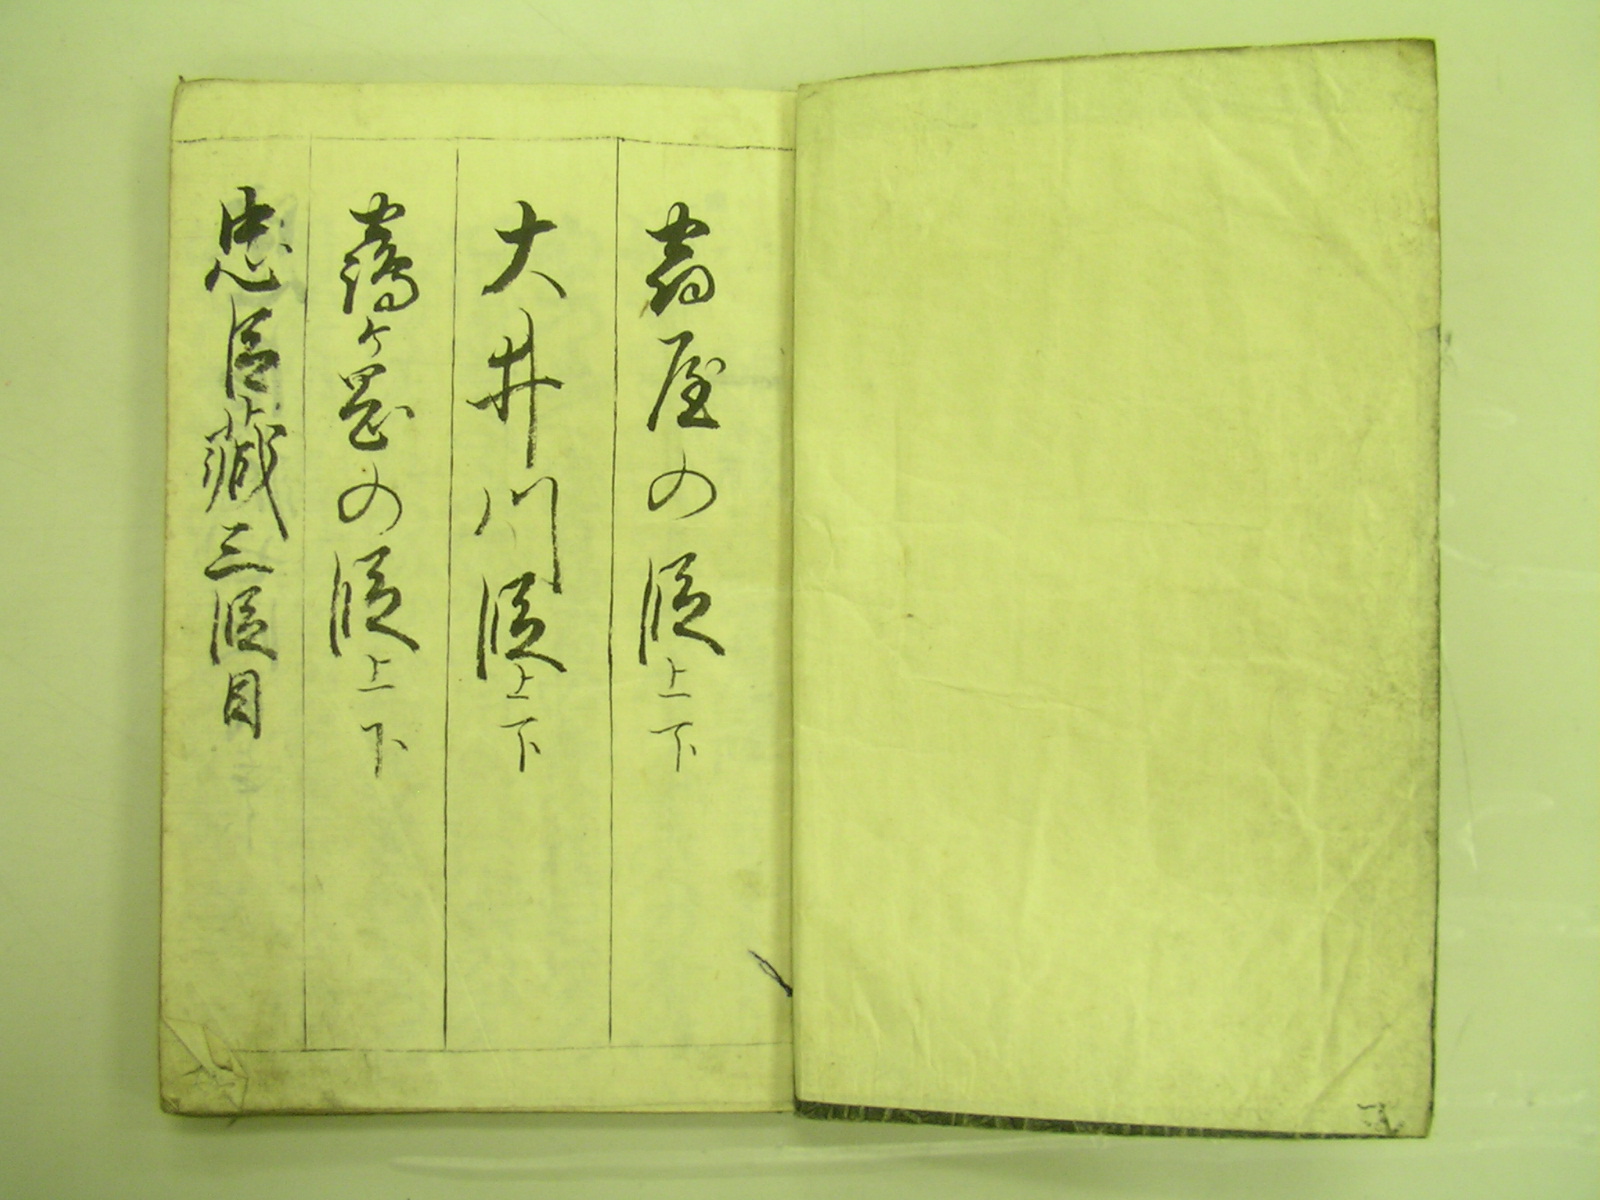 扇屋の段上下
大井川段上下
靍ヶ岡の段上下
忠臣藏三段目